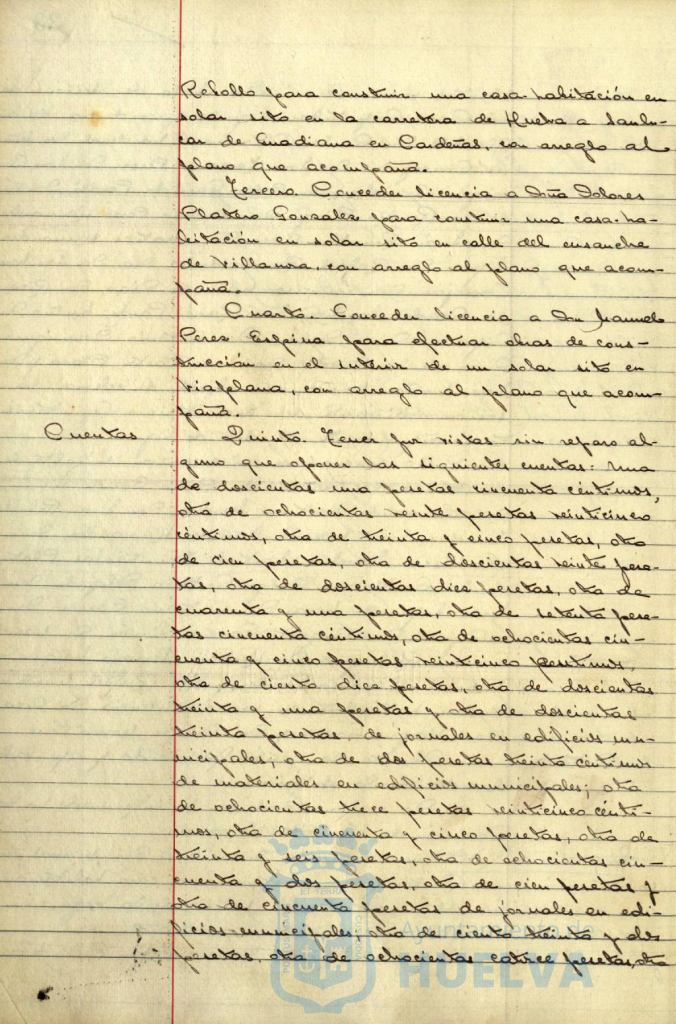 Rebollo para construir una casa-habitación en
solar sito en la carretera de Huelva a Sanlu-
car de Guadiana en Cardeñas, con arreglo al
plano que acompaña.
Tercero. Conceder licencia a Doña Dolores
Platero Gonzalez para construir una casa-ha-
bitación en solar sito en calle del ensanche
de Villanova, con arreglo al plano que acom-
paña.
Cuarto. Conceder licencia a Don Manuel
Perez Espina para efectuar obras de cons-
trucción en el interior de un solar sito en
Viaplana, con arreglo al plano que acom-
paña.
Cuentas
Quinto. Tener por vistas sin reparo al-
guno que oponer las siguientes cuentas: una
de doscientas una pesetas cincuenta céntimos,
otra de ochocientas veinte pesetas veinticinco
céntimos, otra de treinta y cinco pesetas, otra
de cien pesetas, otra de doscientas veinte pese-
tas, otra de doscientas diez pesetas, otra de
cuarenta y una pesetas, otra de setenta pese-
tas cincuenta céntimos, otra de ochocientas cin-
cuenta y cinco pesetas veinticinco
otra de ciento diez pesetas, otra de doscientas
treinta y una pesetas y otra de doscientas
treinta pesetas, de jornales en edificios mu-
nicipales; otra de dos pesetas treinta céntimos
de materiales en edificios municipales; otra
de ochocientas trece pesetas veinticinco cénti-
mos, otra de cincuenta y cinco pesetas, otra de
treinta y seis pesetas, otra de ochocientas cin-
cuenta y dos pesetas, otra de cien pesetas y
otra de cincuenta pesetas de jornales en edi-
ficios municipales, otra de ciento treinta y dos
pesetas, otra de ochocientas catorce pesetas, otra
Ayuntamiento
HUELVA